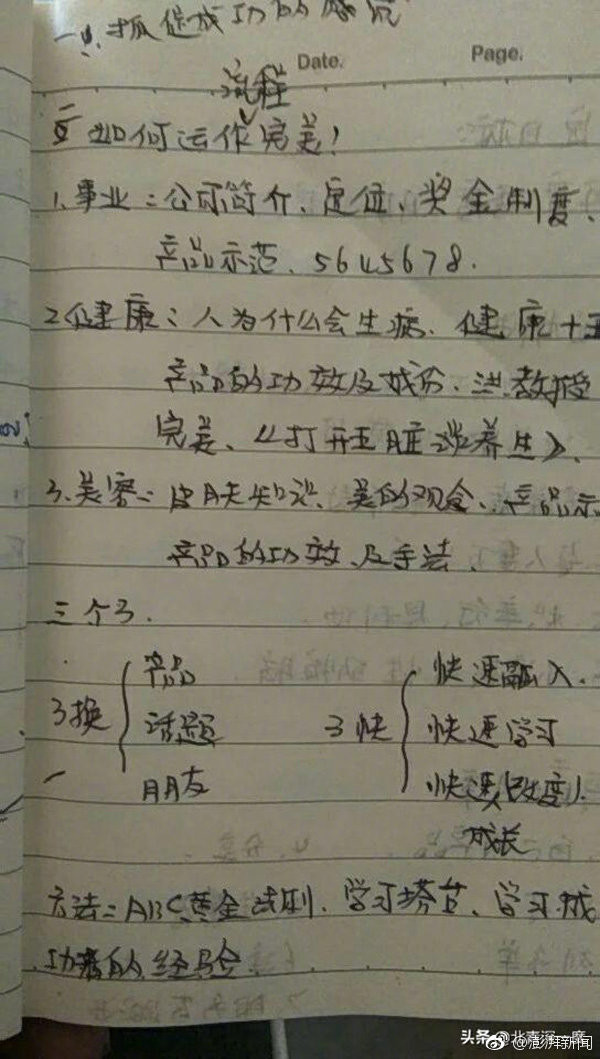 一、抓住成功的感觉
Date.
Page.
流程
如何运作完美!
1、事业:公司简介、定位、奖金制度、
产品示范、5645678.
2健康:人为什么会生病、健康十五
产品的功效及成份、洪教授
完美、《打开五脏谈养生》、
3、美容:皮肤知识、美的观念、产品示
产品的功效、及手法、
三个3.
3换 产品 话题 朋友
3快 快速融入、 快速学习 快速(改变)、 成长
方法:ABC黄金法则、学习搭档、学习成
功者的经验
头条@北嘉深一度
@澎湃新闻